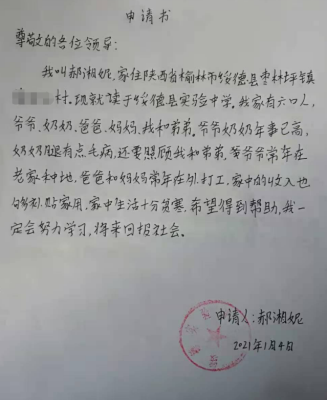 申请书
尊敬的各位领导:
我叫郝湘妮,家住陕西省榆林市绥德县枣林坪镇
村,现就读于绥德县实验中学。我家有六口人,
爷爷、奶奶、爸爸、妈妈、我和弟弟。爷爷奶奶年事已高,
奶奶腿有点毛病,还要照顾我和弟弟,爷爷常年在
老家种地,爸爸和妈妈常年在外打工,家中的收入也
够补贴家用,家中生活十分贫寒,希望得到帮助,我一
定会努力学习,将来回报社会。
申请人:郝湘妮
2021年1月4日